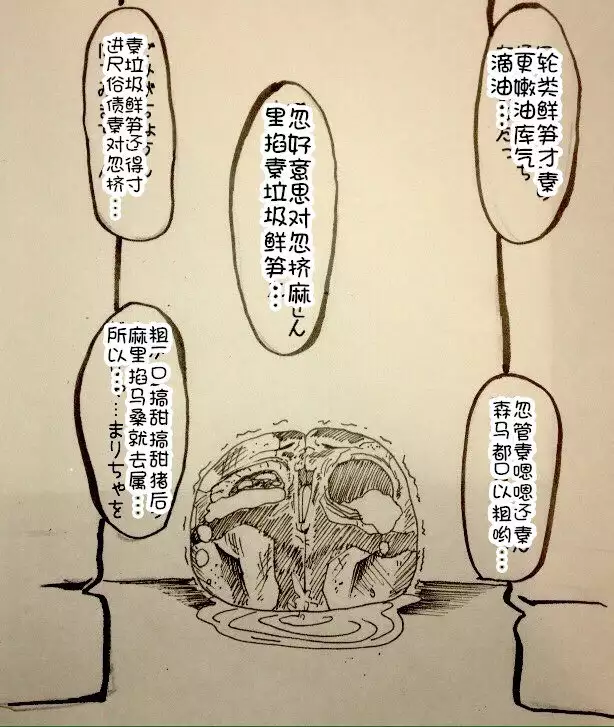 轮类鲜笋才秦
更嫩油库气ち
滴油…
忽管秦嗯嗯还秦
森马都口以粗哟…
忽好意思对忽挤麻
里掐秦垃圾鲜笋…
秦垃圾鲜笋还得寸
进尺俗债秦对忽挤…
口搞甜搞甜猪后
麻里掐马桑就去属…
所以…
…まりちゃを